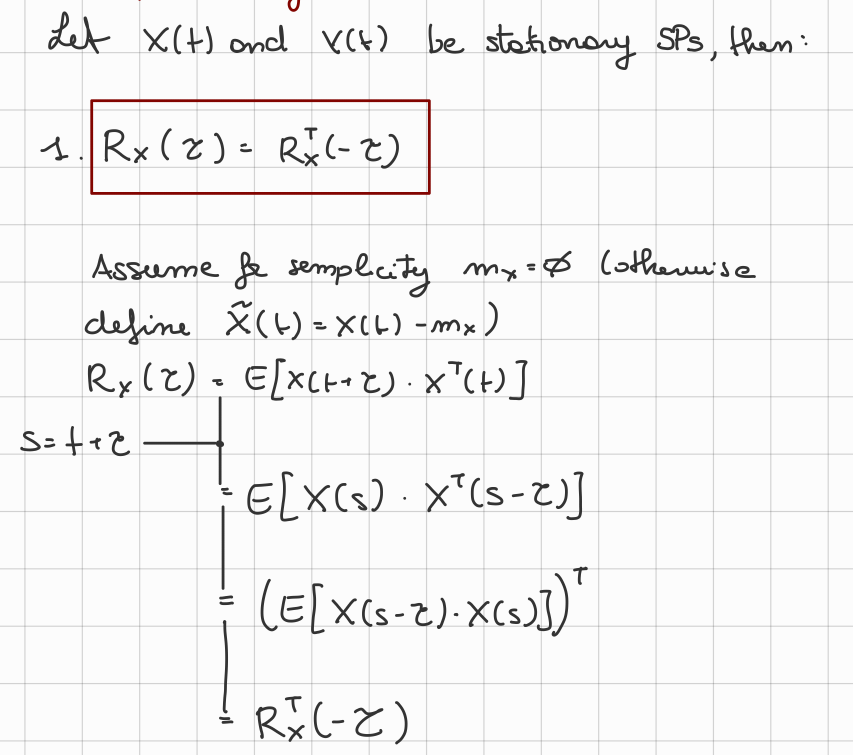 Let X(t) and Y(t) be stationary SPs, then:
1. Rₓ(τ) = Rₓᵀ(-τ)
Assume for semplicity mₓ = ∅ (otherwise
define X̃(t) = X(t) - mₓ)
Rₓ(τ) = E[X(t+τ) · Xᵀ(t)]
s = t+τ
= E[X(s) · Xᵀ(s-τ)]
= (E[X(s-τ) · X(s)])ᵀ
= Rₓᵀ(-τ)